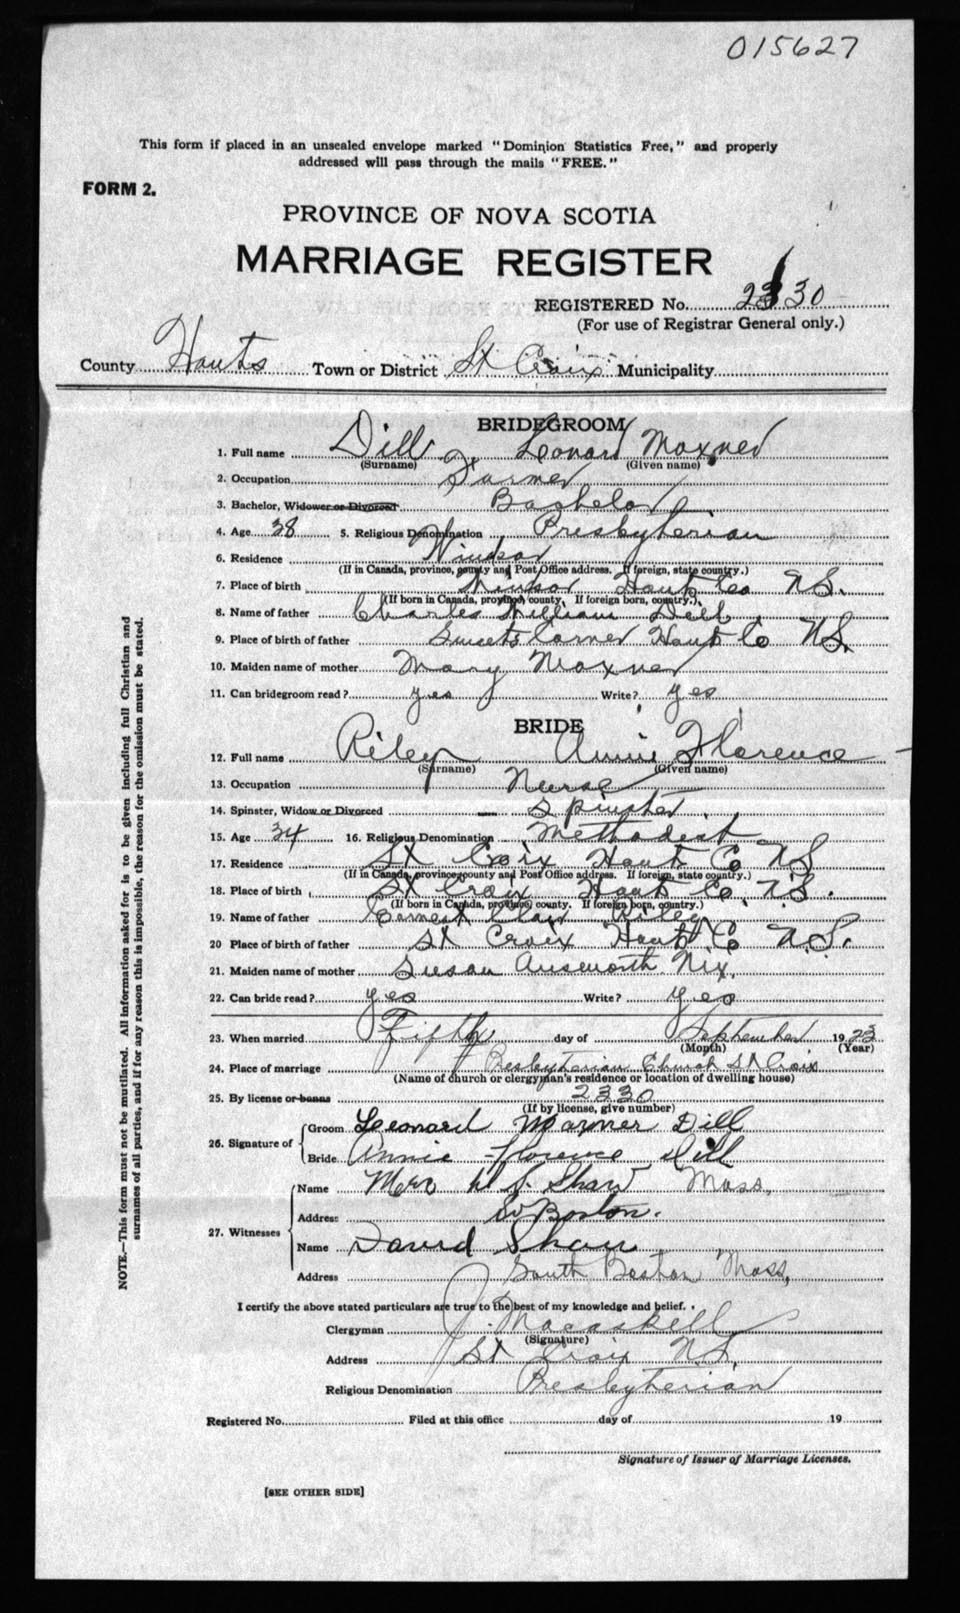 015627
This form if placed in an unsealed envelope marked "Dominion Statistics Free," and properly
addressed will pass through the mails "FREE."
FORM 2.
PROVINCE OF NOVA SCOTIA
MARRIAGE REGISTER
REGISTERED No. 2330
(For use of Registrar General only.)
County Hants Town or District St Croix Municipality
BRIDEGROOM
1. Full name Dill Leonard Maxner
(Surname) (Given name)
2. Occupation Farmer
3. Bachelor, Widower or Divorced Bachelor
4. Age 38 5. Religious Denomination Presbyterian
6. Residence Windsor
(If in Canada, province, county and Post Office address. If foreign, state country.)
7. Place of birth Windsor Hants Co N.S.
(If born in Canada, province, county. If foreign born, country.)
8. Name of father Charles William Dill
9. Place of birth of father Sweets Corner Hants Co N.S.
10. Maiden name of mother Mary Maxner
11. Can bridegroom read? yes Write? yes
BRIDE
12. Full name Riley Annie Florence
(Surname) (Given name)
13. Occupation Nurse
14. Spinster, Widow or Divorced Spinster
15. Age 34 16. Religious Denomination Methodist
17. Residence St Croix Hants Co N.S
(If in Canada, province, county and Post Office address. If foreign, state country.)
18. Place of birth St Croix Hants Co. N.S.
(If born in Canada, province, county. If foreign born, country.)
19. Name of father Earnest Clair Riley
20 Place of birth of father St Croix Hants Co N.S.
21. Maiden name of mother Susan Ausworth Nix.
22. Can bride read? yes Write? yes
23. When married Fifth day of September 1923
(Month) (Year)
24. Place of marriage Presbyterian Church St Croix
(Name of church or clergyman's residence or location of dwelling house)
25. By license or banns 2330
(If by license, give number)
26. Signature of Groom Leonard Maxner Dill
Bride Annie Florence Dill
27. Witnesses Name Mrs Shaw Mass.
Address So Boston.
Name David Shaw
Address South Boston Mass,
I certify the above stated particulars are true to the best of my knowledge and belief.
Clergyman J. Macaskell
(Signature)
Address St Croix N.S.
Religious Denomination Presbyterian
Registered No. Filed at this office day of 19
Signature of Issuer of Marriage Licenses.
[SEE OTHER SIDE]
NOTE.—This form must not be mutilated. All information asked for is to be given including full Christian and
surnames of all parties, and if for any reason this is impossible, the reason for the omission must be stated.